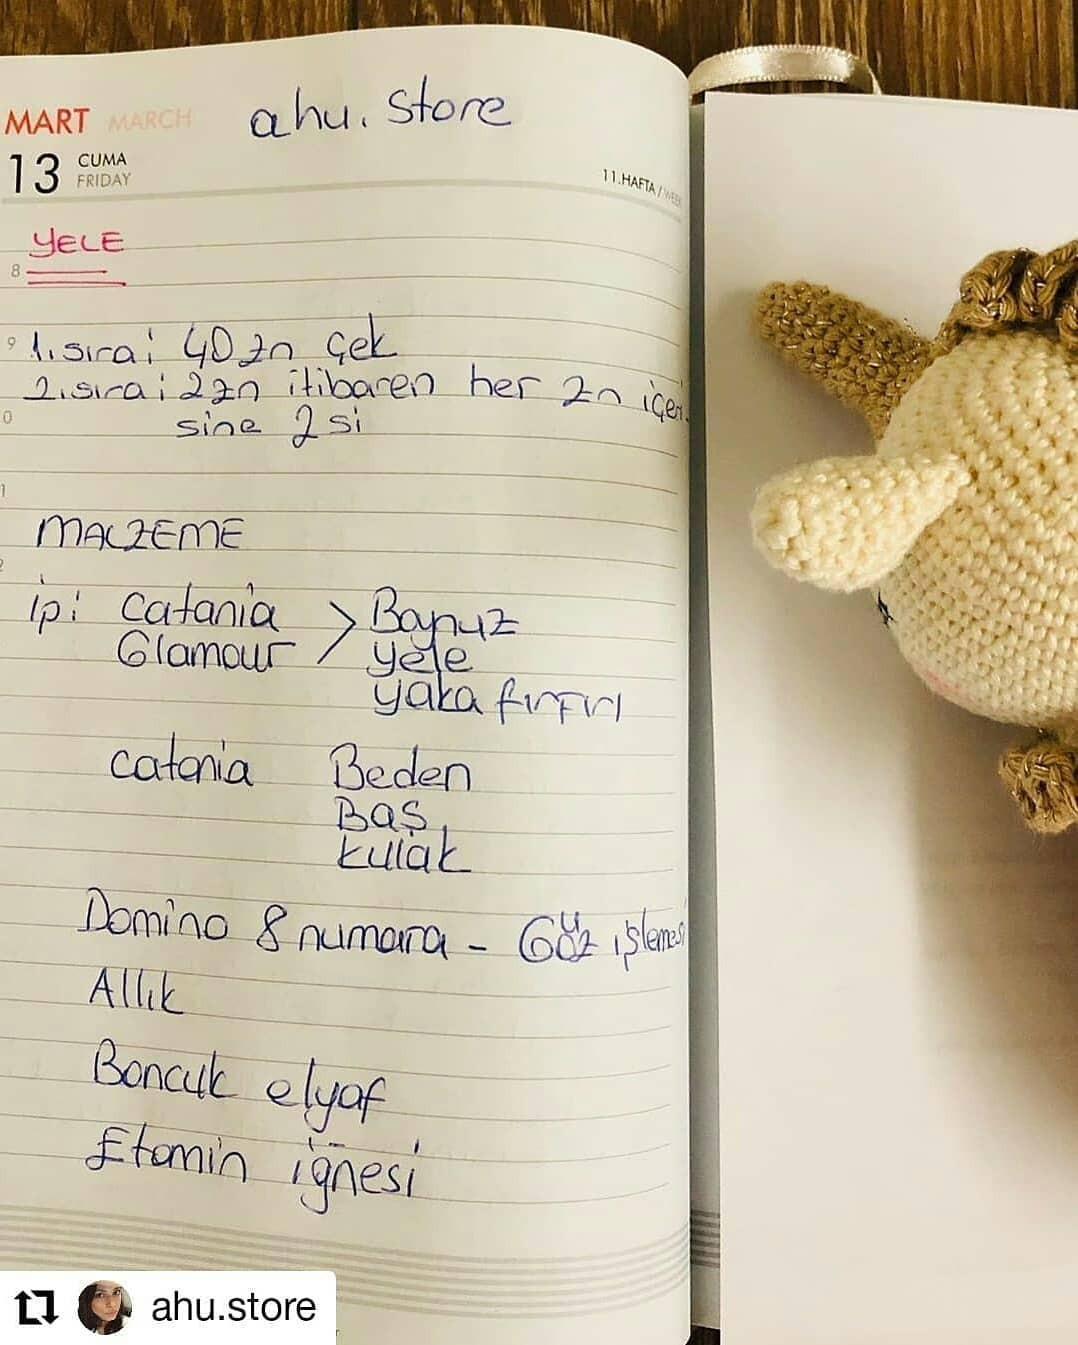 MART MARCH ahu.store
13 CUMA
FRIDAY
11.HAFTA / WEEK
YELE
8
9 1.sıra: 40 zn çek
2.sıra: 2zn itibaren her zn içeri
0
sine 2 si
1
MALZEME
2
ip: Catania > Boynuz
Glamour yele
yaka fırfırı
Catania Beden
Baş
kulak
Domino 8 numara - Göz işlemesi
Allık
Boncuk elyaf
Etamin iğnesi
ahu.store